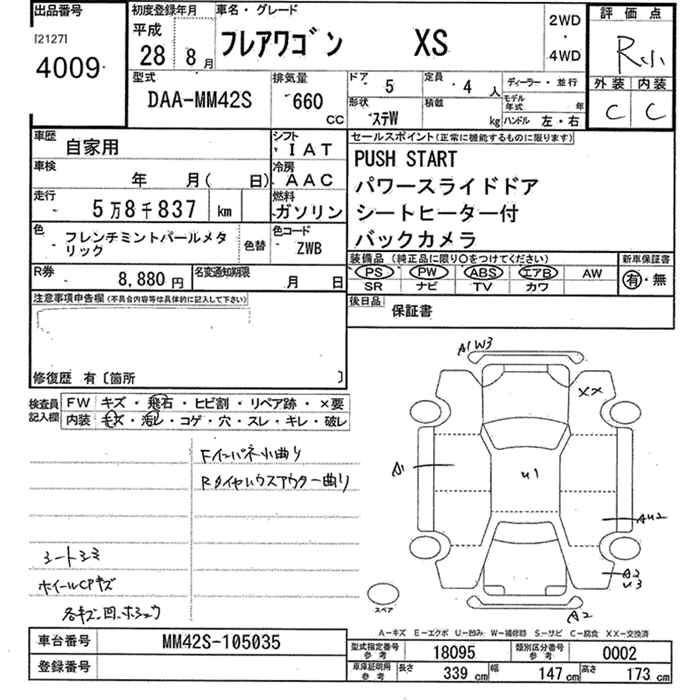 出品番号
[2127]
4009
初度登録年月
平成
28年 8月
車名・グレード
フレアワゴン XS
2WD
・
4WD
評価点
R小
外装 内装
C C
型式
DAA-MM42S
排気量
660 CC
ドア 5
定員 4人
ディーラー・並行
形状 ステW
積載 kg
モデル年式 年
ハンドル 左・右
車歴
自家用
シフト
IAT
セールスポイント(正常に機能するものに限ります)
PUSH START
パワースライドドア
シートヒーター付
バックカメラ
車検
年 月( 日)
冷房
AAC
走行
5万8千837 km
燃料
ガソリン
色
フレンチミントパールメタリック
色替
色コード
ZWB
装備品(純正品に限り○をつけてください)
PS PW ABS エアB AW
SR ナビ TV カワ
新車保証書
有・無
R券
8,880円
名変通知期限
月 日
後日品
保証書
注意事項申告欄(不具合内容等は具体的に記入して下さい)
修復歴 有〔箇所 〕
検査員記入欄
FW キズ・飛石・ヒビ割・リペア跡・×要
内装 キズ・汚レ・コゲ・穴・スレ・キレ・破レ
Fインパネ小曲り
シートシミ
ホイールCPキズ
A1 W3
XX
A1
U1
AU2
A2
U3
A2
スペア
A-キズ E-エクボ U-凹み W-補修跡 S-サビ C-腐食 XX-交換済
車台番号
MM42S-105035
登録番号
型式指定番号 参考
18095
類別区分番号 参考
0002
車庫証明用 参考
長さ 339cm 幅 147cm 高さ 173cm